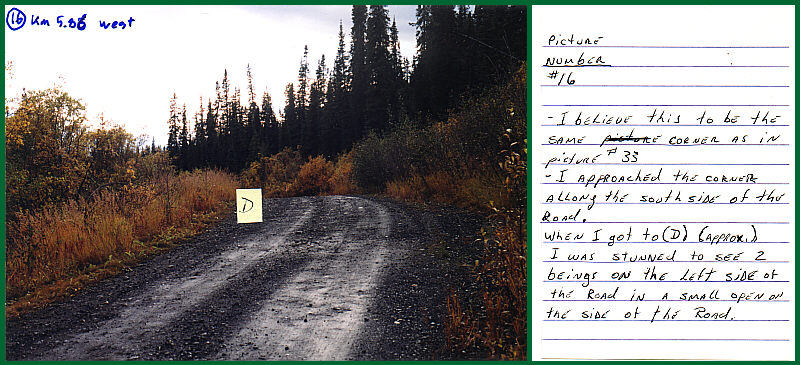 16 Km 5.86 west
D
Picture
Number
#16
- I believe this to be the
same picture corner as in
picture #33
- I approached the corner
allong the south side of the
Road.
When I got to (D) (approx.)
I was stunned to see 2
beings on the left side of
the Road in a small open on
the side of the Road.